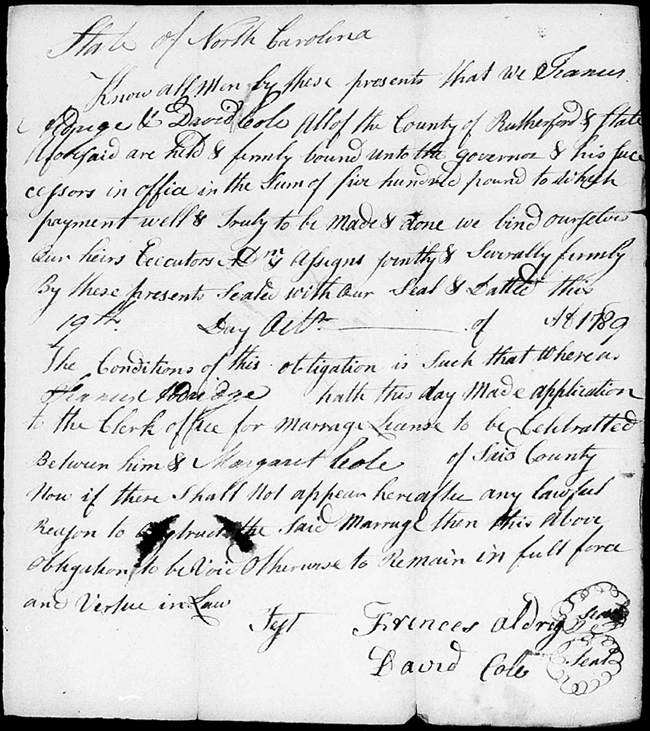 State of North Carolina
Know all Men by these presents that we Frances
& David Cole All of the County of Rutherford & State
Aforesaid are held & firmly bound unto the governor & his suc
cessors in office in the Sum of five hundred pound to which
payment well & Truly to be Made & done we bind ourselves
Our heirs Executors Adm & Assigns jointly & Severally firmly
By these presents Sealed with Our Seal & Datted this
19th Day Octbr of AD 1789
The Conditions of this obligation is Such that Whereas
hath this day Made application
to the Clerk office for Marrage Leanse to be Celebratted
Between him & Margaret Cole of Said County
Now if there Shall Not appear hereafter any lawful
Reason to the Said Marrage then this Above
Obligation to be Void Otherwise to Remain in full force
and Vertue in Law
Test Frences Aldrig Seal
David Cole Seal